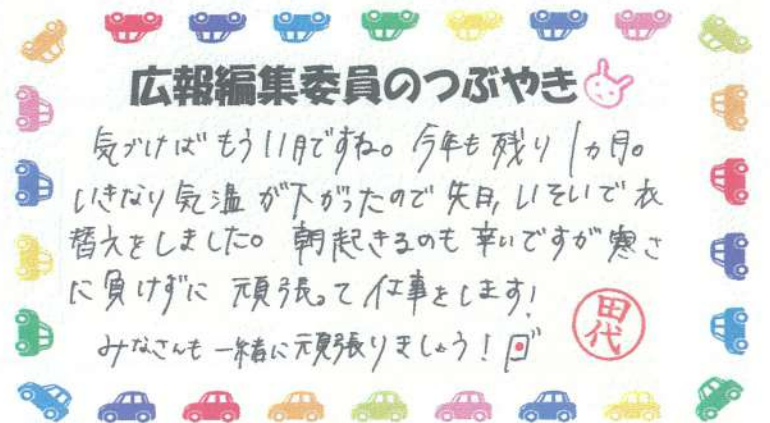 広報編集委員のつぶやき
気づけばもう11月ですね。今年も残り1ヵ月。
いきなり気温が下がったので先日、いそいで衣
替えをしました。朝起きるのも辛いですが寒さ
に負けずに頑張って仕事をします!
みなさんも一緒に頑張りましょう!
田代